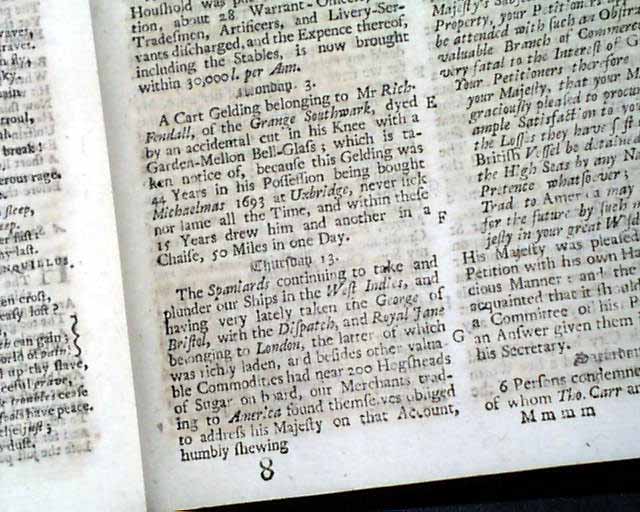 Houshold was
tion, about 28 Warrant-
Tradesmen, Artificers, and Livery-Ser-
vants discharged, and the Expence thereof,
including the Stables, is now brought
within 30,000 l. per Ann.
Monday. 3.
A Cart Gelding belonging to Mr Rich.
Fendall, of the Grange Southwark, dyed
by an accidental cut in his Knee with a
Garden-Mellon Bell-Glaſs; which is ta-
ken notice of, because this Gelding was
44 Years in his Poſſeſſion being bought
Michaelmas 1693 at Uxbridge, never ſick
nor lame all the Time, and within theſe
15 Years drew him and another in a
Chaiſe, 50 Miles in one Day.
Thurſday 13.
The Spaniards continuing to take and
plunder our Ships in the Weſt Indies, and
having very lately taken the George of
Briſtol, with the Diſpatch, and Royal Jane
belonging to London, the latter of which
was richly laden, and beſides other valua-
ble Commodities had near 200 Hogſheads
of Sugar on board, our Merchants trad-
ing to America found themſelves obliged
to addreſs his Majeſty on that Account,
humbly ſhewing
8
E
F
G
Majeſty's
Property, your Petitioners
be attended with ſuch an
valuable Branch of Commerce
very fatal to the Intereſt of
Your Petitioners therefore
your Majeſty, that your
graciouſly pleaſed to procure
ample Satisfaction to
the Loſſes they have
British Veſſel be detained
the High Seas by any
Pretence whatſoever;
Trad to America may
for the future by ſuch
jeſty in your great
His Majeſty was pleaſed
Petition with his own
cious Manner; and
acquainted that it
a Committee of his
an Answer given them
his Secretary.
6 Perſons
of whom Tho. Carr
M m m m
break!
rage.
ſleep,
croſt,
loſt?
can gain;
thy ſlave,
grave,
troubles ceaſe
have peace.
juſt;
duſt.